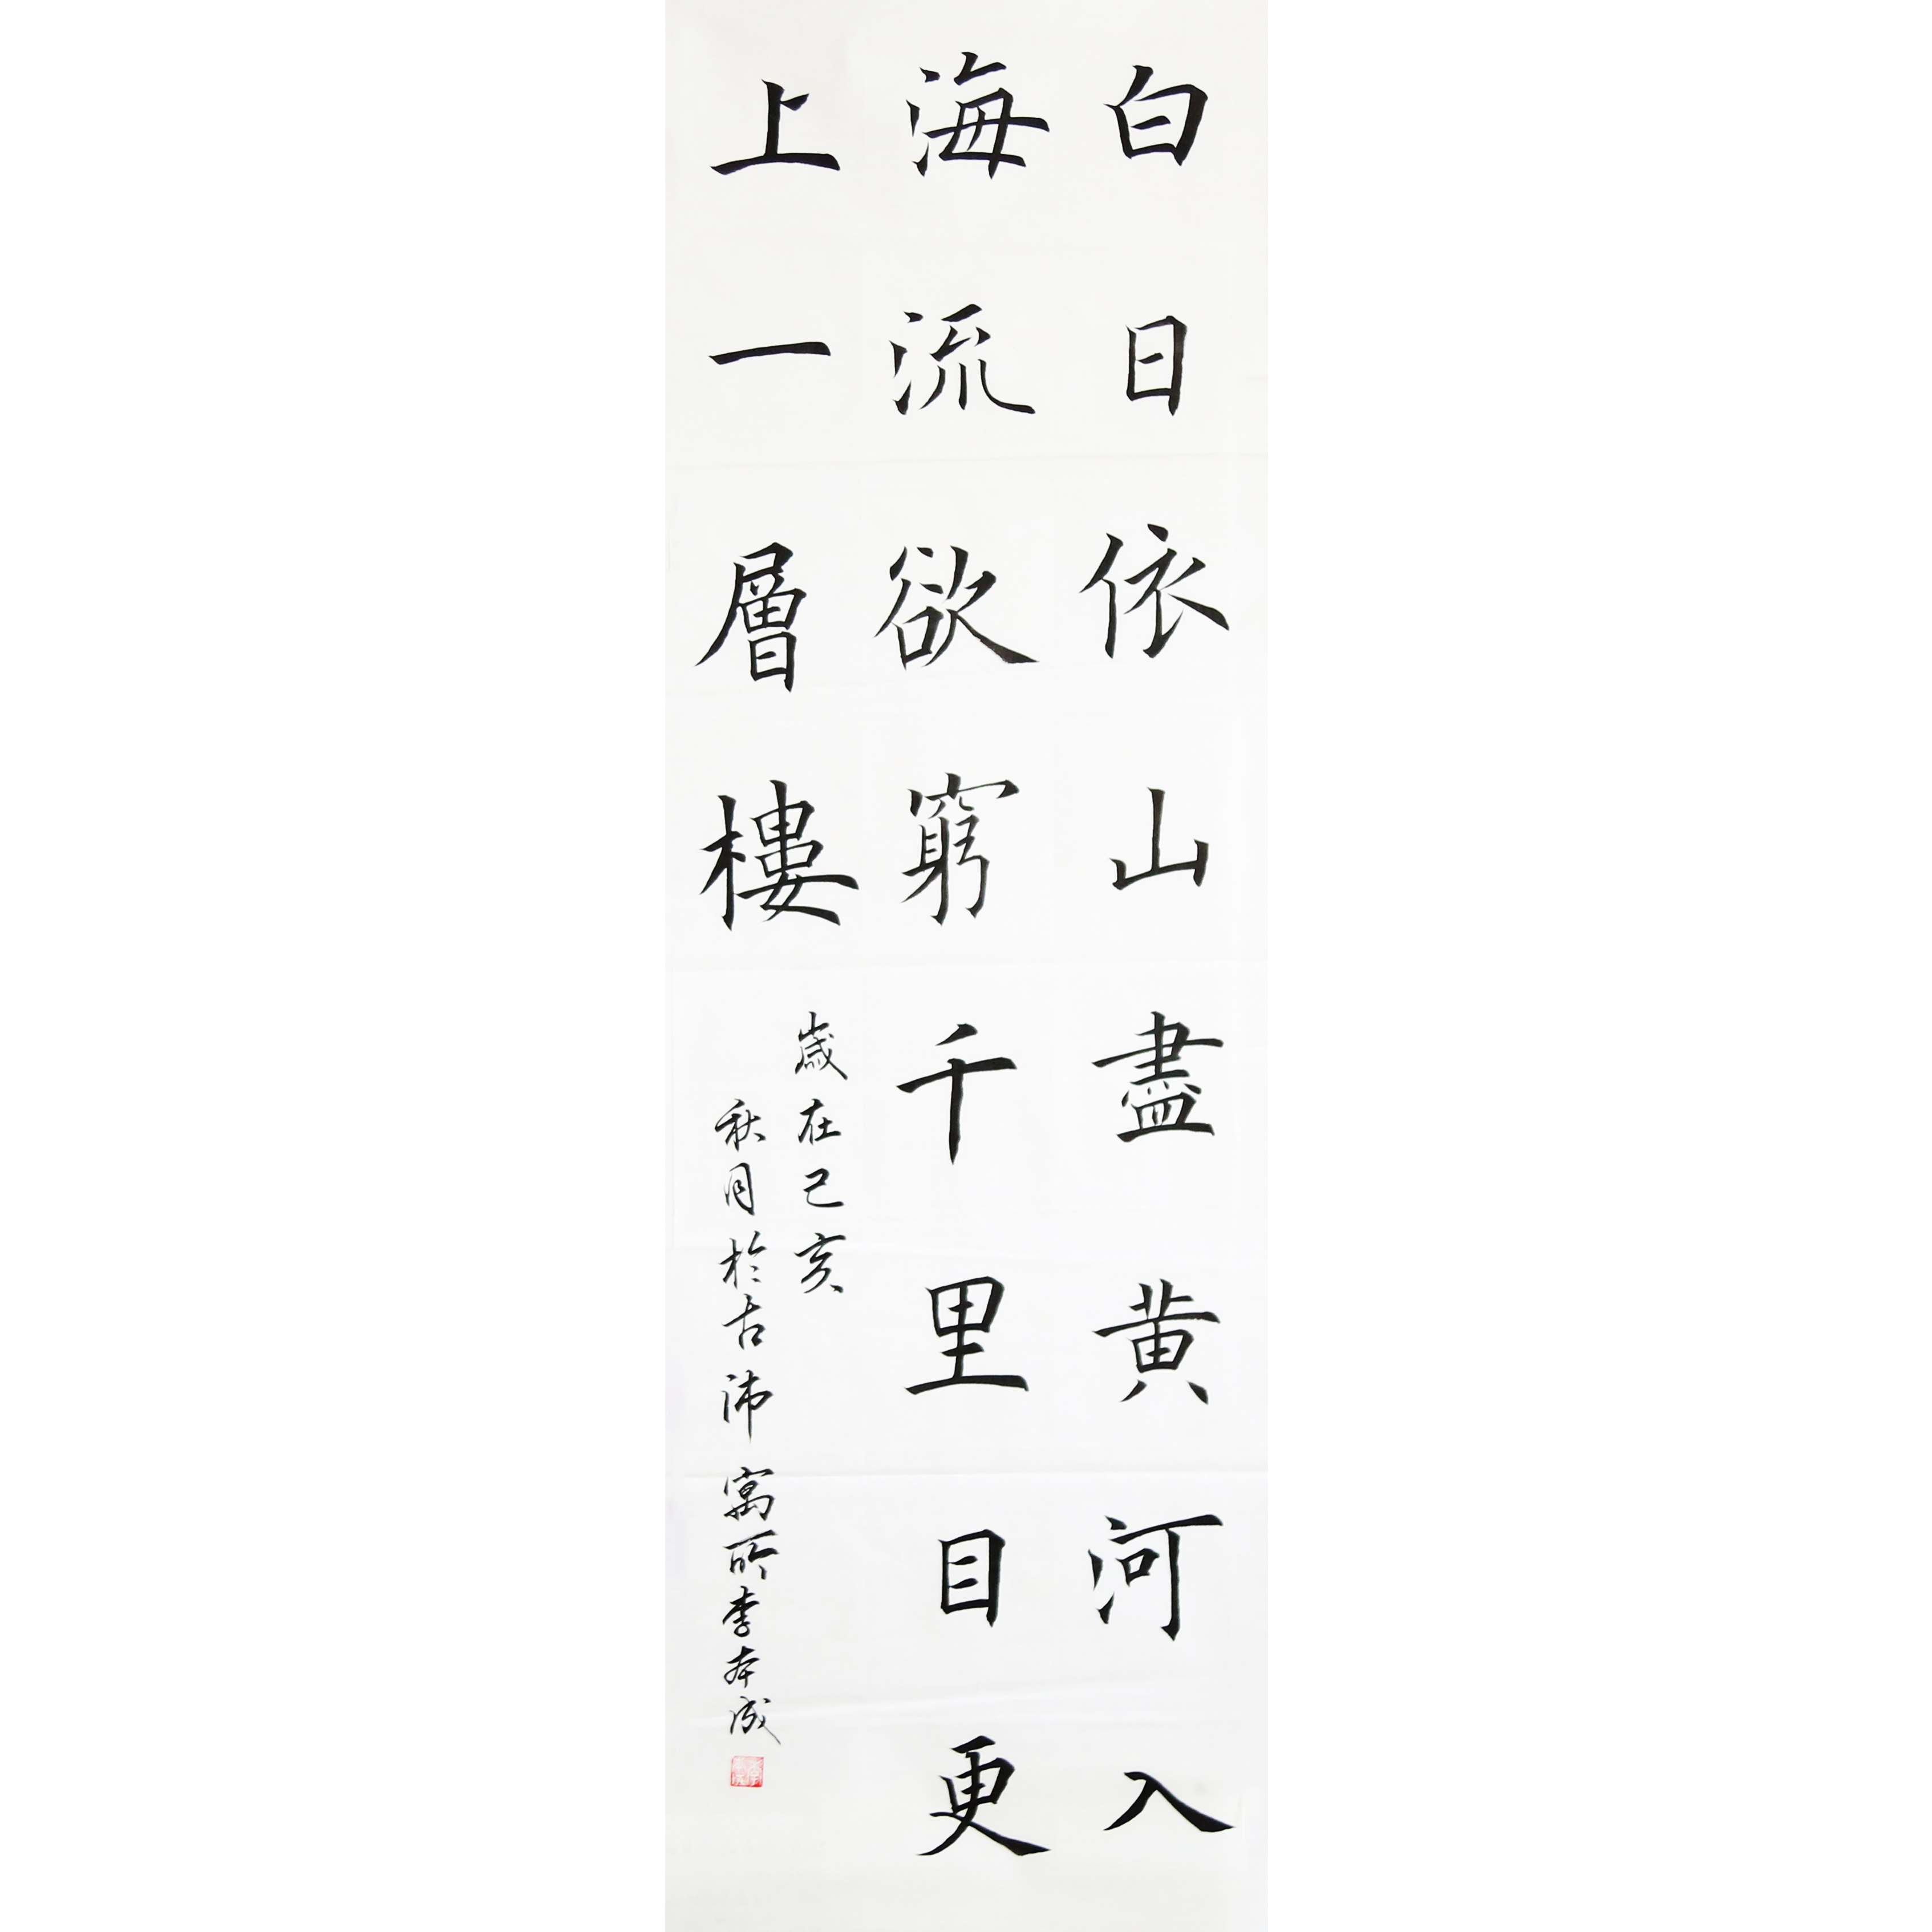 白日依山盡黄河入
海流欲窮千里目更
上一層樓
歲在己亥
秋月於古沛寓所李本成